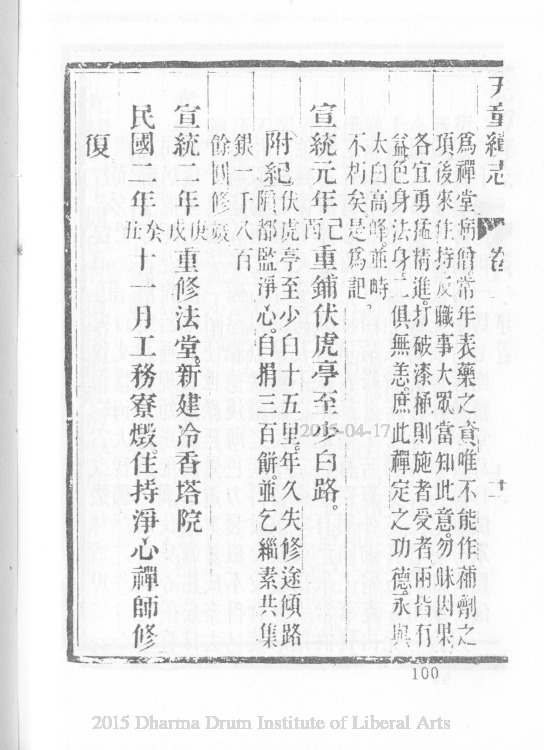 天童續志
卷
十
為禪堂病僧常年表藥之資唯不能作補劑之
項後來住持及職事大眾當知此意勿昧因果
各宜勇猛精進打破漆桶則施者受者兩皆有
益色身法身俱無恙庶此禪定之功德永與
太白高峰並峙
不朽矣是為記
宣統元年己酉重鋪伏虎亭至少白路。
附紀伏虎亭至少白十五里年久失修途傾路
隕都監淨心自捐三百餅並乞緇素共集
銀一千八百
餘圓修
宣統年庚戌重修法堂新建冷香塔院
民國二年癸丑十一月工務寮燬住持淨心禪師修
復
2015-04-17
100
2015 Dharma Drum Institute of Liberal Arts